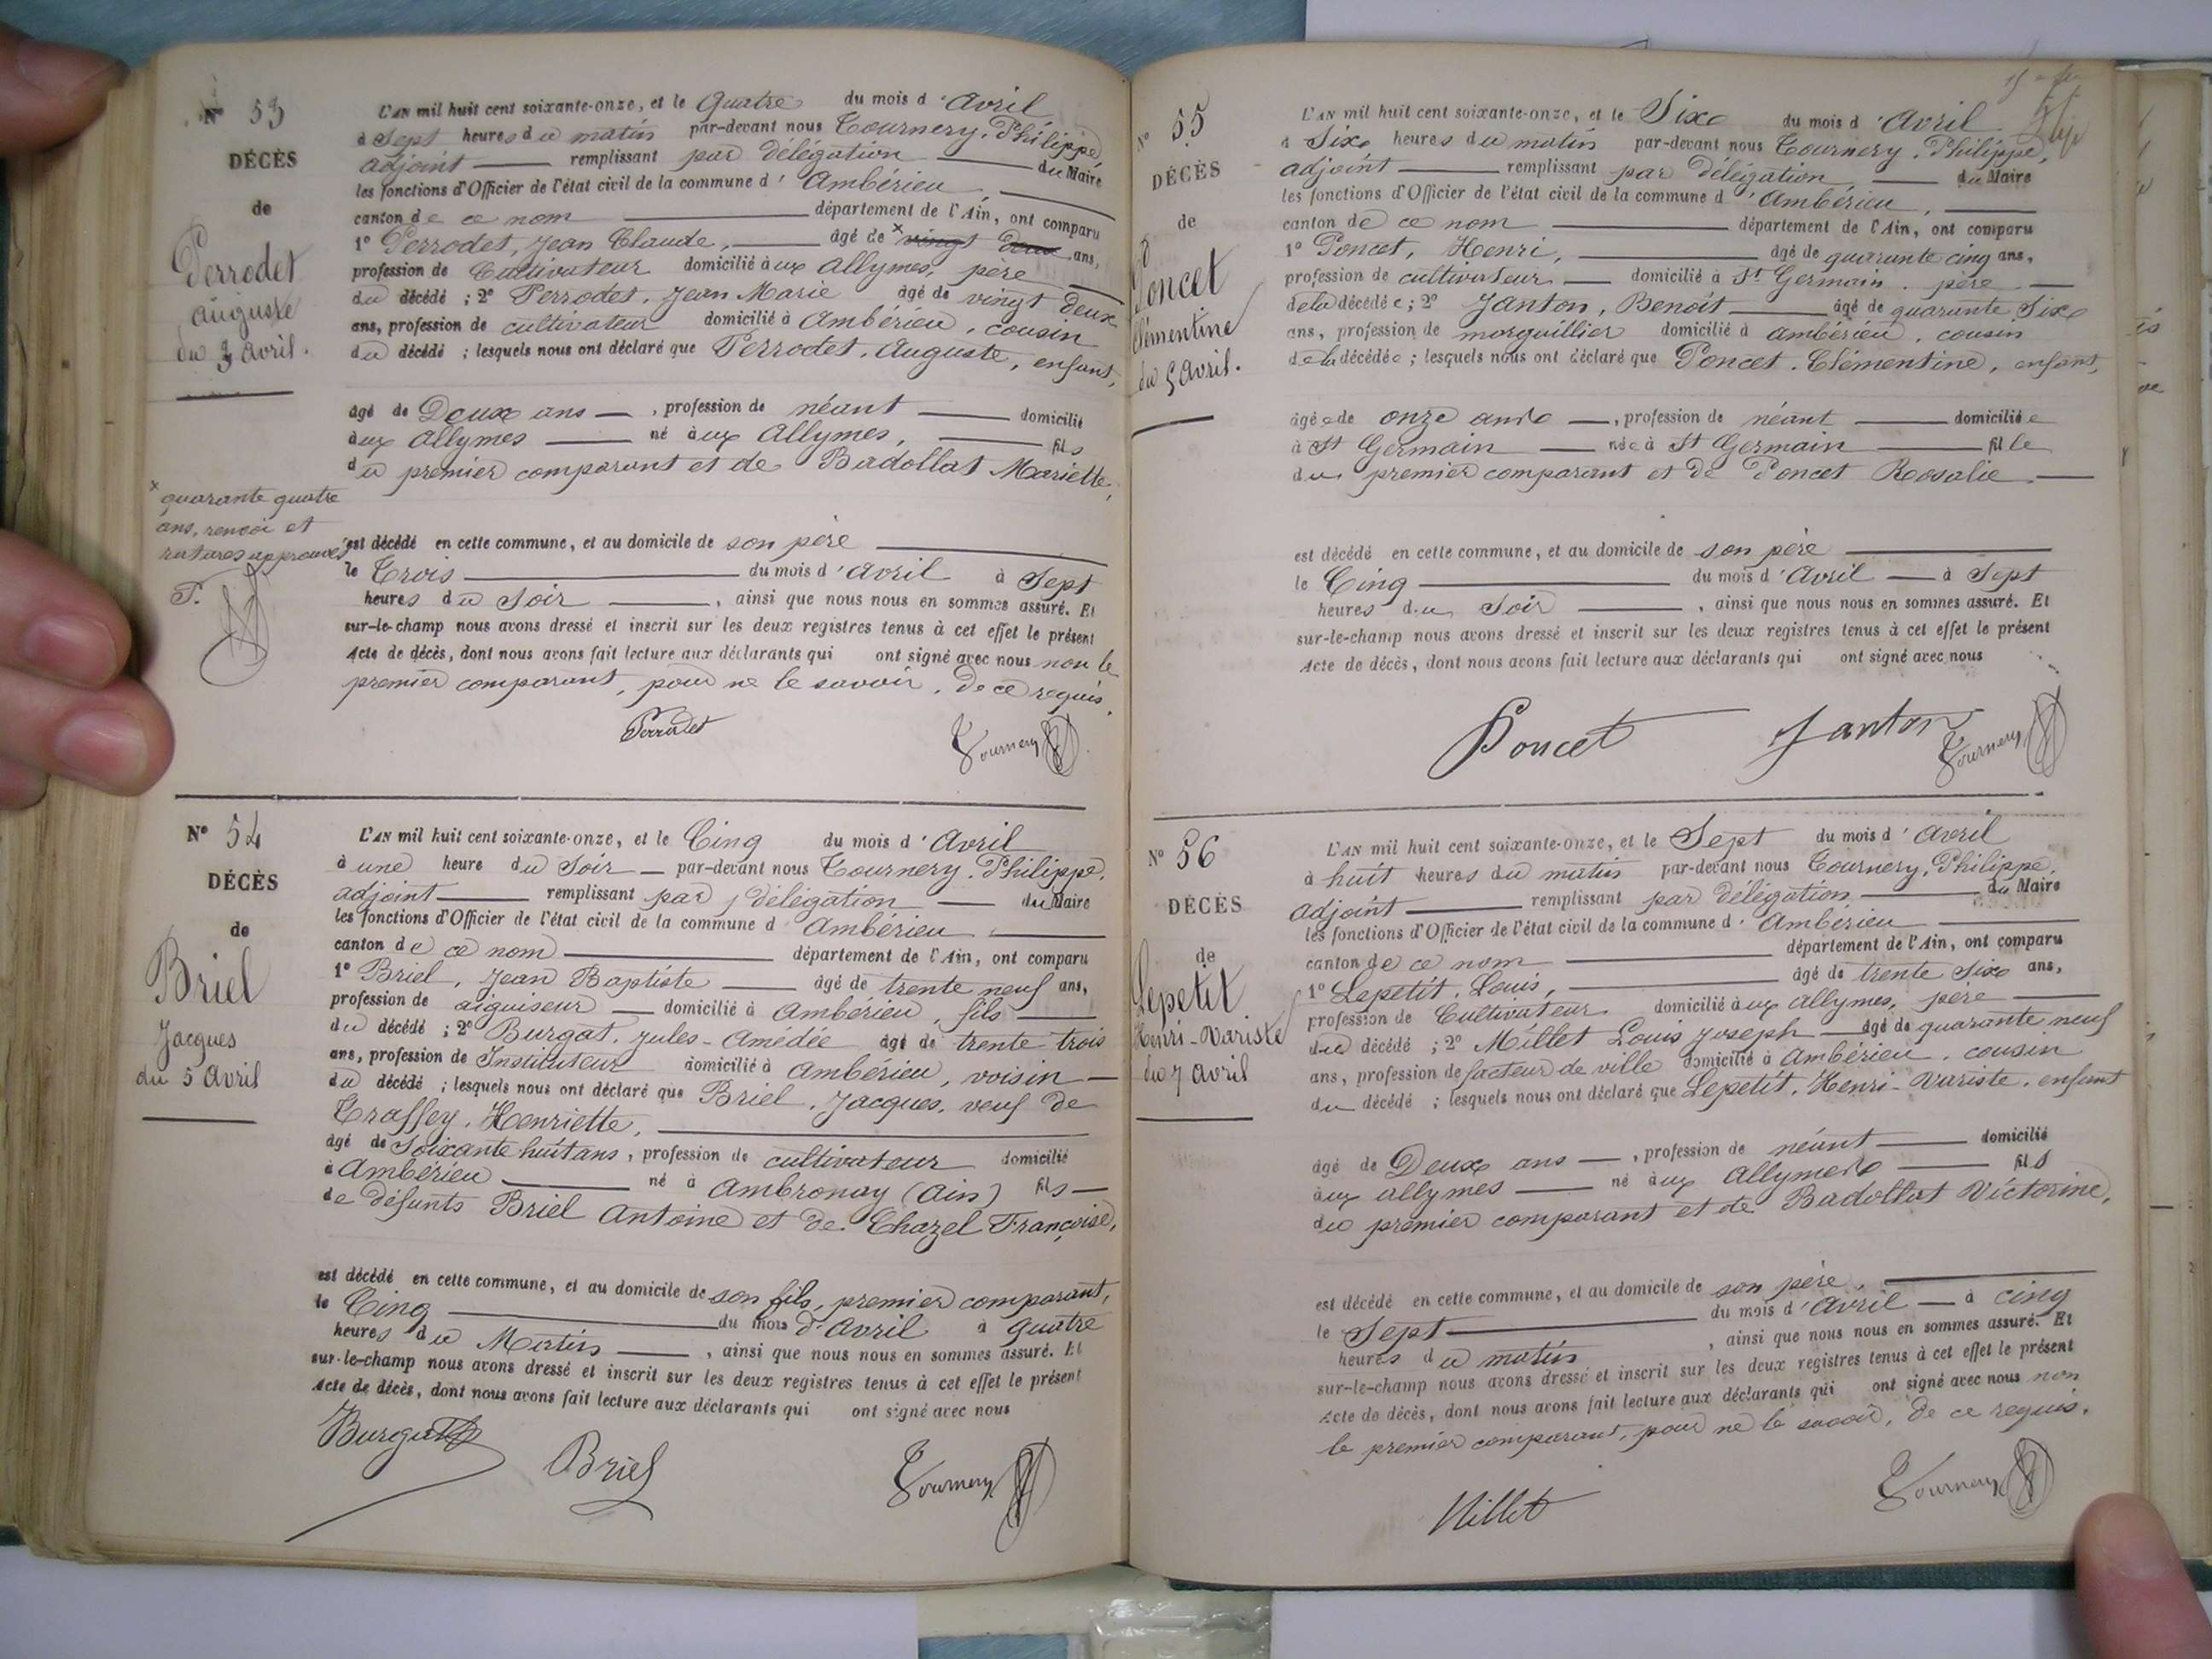 N° 53
DÉCÈS
de
Perrodet
auguste
du 3 avril.
L'AN mil huit cent soixante-onze, et le Quatre du mois d'Avril
à Sept heures du matin par-devant nous Tournery, Philippe,
adjoint remplissant par délégation du Maire
les fonctions d'Officier de l'état civil de la commune d'Ambérieu,
canton de ce nom département de l'Ain, ont comparu
1° Perrodet, Jean Claude, âgé de × vingt deux ans,
profession de Cultivateur domicilié aux allymes, père
du décédé ; 2° Perrodet, Jean Marie âgé de vingt deux
ans, profession de cultivateur domicilié à Ambérieu, cousin
du décédé ; lesquels nous ont déclaré que Perrodet, Auguste, enfant,
âgé de Deux ans, profession de néant domicilié
aux allymes né aux allymes, fils
du premier comparant et de Badollat Mariette,
× quarante quatre
ans, renvoi et
ratures approuvés
T.
est décédé en cette commune, et au domicile de son père
le Trois du mois d'Avril à Sept
heures du Soir, ainsi que nous nous en sommes assuré. Et
sur-le-champ nous avons dressé et inscrit sur les deux registres tenus à cet effet le présent
Acte de décès, dont nous avons fait lecture aux déclarants qui ont signé avec nous non le
premier comparant, pour ne le savoir, de ce requis.
Perrodet Tournery
N° 54
DÉCÈS
de
Briel
Jacques
du 5 avril
L'AN mil huit cent soixante-onze, et le Cinq du mois d'Avril
à une heure du Soir par-devant nous Tournery, Philippe,
adjoint remplissant par délégation du Maire
les fonctions d'Officier de l'état civil de la commune d'Ambérieu,
canton de ce nom département de l'Ain, ont comparu
1° Briel, Jean Baptiste âgé de trente neuf ans,
profession de aiguiseur domicilié à Ambérieu, fils
du décédé ; 2° Burgat, Jules-Amédée âgé de trente trois
ans, profession de Instituteur domicilié à Ambérieu, voisin
du décédé ; lesquels nous ont déclaré que Briel, Jacques, veuf de
Traffey, Henriette,
âgé de Soixante huit ans, profession de cultivateur domicilié
à Ambérieu né à Ambronay (Ain) fils
de défunts Briel Antoine et de Chazel Françoise,
est décédé en cette commune, et au domicile de son fils, premier comparant,
le Cinq du mois d'Avril à quatre
heures du Matin, ainsi que nous nous en sommes assuré. Et
sur-le-champ nous avons dressé et inscrit sur les deux registres tenus à cet effet le présent
Acte de décès, dont nous avons fait lecture aux déclarants qui ont signé avec nous
Burgat Briel Tournery
N° 55
DÉCÈS
de
Poncet
Clémentine
du 5 Avril.
L'AN mil huit cent soixante-onze, et le Six du mois d'Avril
à Six heures du matin par-devant nous Tournery, Philippe,
adjoint remplissant par délégation du Maire
les fonctions d'Officier de l'état civil de la commune d'Ambérieu,
canton de ce nom département de l'Ain, ont comparu
1° Poncet, Henri, âgé de quarante cinq ans,
profession de cultivateur domicilié à St Germain, père
de la décédée ; 2° Janton, Benoit âgé de quarante Six
ans, profession de marguillier domicilié à ambérieu, cousin
de la décédée ; lesquels nous ont déclaré que Poncet, Clémentine, enfant,
âgée de onze ans, profession de néant domiciliée
à St Germain née à St Germain fille
du premier comparant et de Poncet Rosalie
est décédé en cette commune, et au domicile de son père
le Cinq du mois d'Avril à Sept
heures du Soir, ainsi que nous nous en sommes assuré. Et
sur-le-champ nous avons dressé et inscrit sur les deux registres tenus à cet effet le présent
Acte de décès, dont nous avons fait lecture aux déclarants qui ont signé avec nous
Poncet Janton Tournery
N° 56
DÉCÈS
de
Lepetit
Henri-Variste
du 7 avril
L'AN mil huit cent soixante-onze, et le Sept du mois d'Avril
à huit heures du matin par-devant nous Tournery, Philippe,
adjoint remplissant par délégation du Maire
les fonctions d'Officier de l'état civil de la commune d'Ambérieu
canton de ce nom département de l'Ain, ont comparu
1° Lepetit, Louis, âgé de trente Six ans,
profession de Cultivateur domicilié aux allymes, père
du décédé ; 2° Millet Louis Joseph âgé de quarante neuf
ans, profession de facteur de ville domicilié à Ambérieu, cousin
du décédé ; lesquels nous ont déclaré que Lepetit, Henri-Variste, enfant
âgé de Deux ans, profession de néant domicilié
aux allymes né aux allymes fils
du premier comparant et de Badollat Victorine,
est décédé en cette commune, et au domicile de son père,
le Sept du mois d'Avril à cinq
heures du matin, ainsi que nous nous en sommes assuré. Et
sur-le-champ nous avons dressé et inscrit sur les deux registres tenus à cet effet le présent
Acte de décès, dont nous avons fait lecture aux déclarants qui ont signé avec nous non
le premier comparant, pour ne le savoir, de ce requis.
Millet Tournery